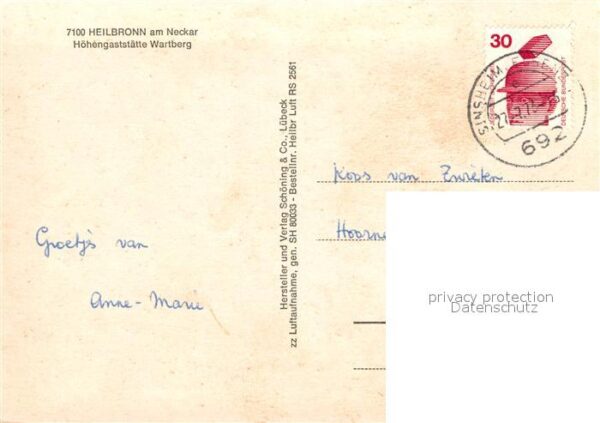 7100 HEILBRONN am Neckar
Höhengaststätte Wartberg
Groetjs van
Anne-Marie
Hersteller und Verlag Schöning & Co., Lübeck
zz Luftaufnahme, gen. SH 80033 - Bestellnr. Heilbr Luft RS 2561
30
DEUTSCHE BUNDESPOST
SINSHEIM
692
Koos van Zwieten
privacy protection
Datenschutz